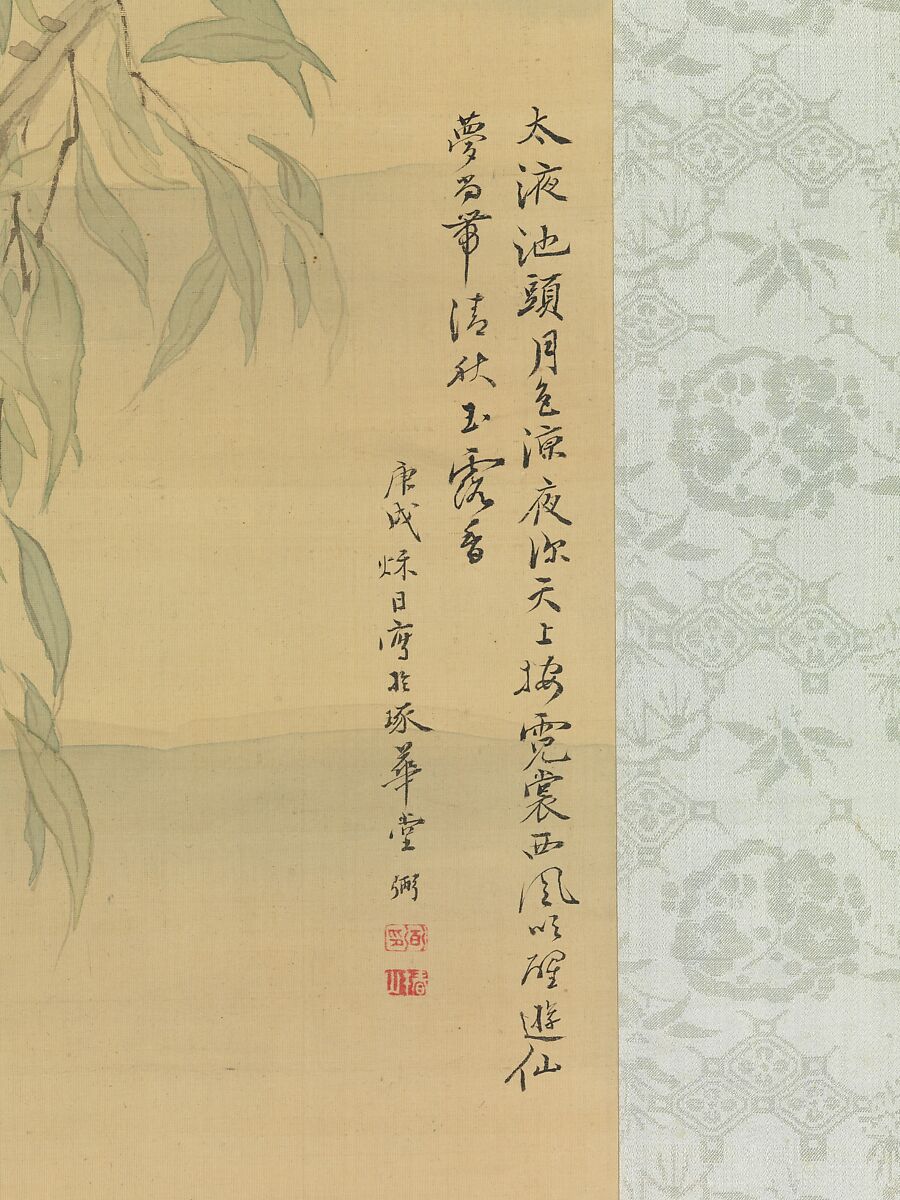 太液池頭月色涼夜深天上按霓裳西風吹醒遊仙
夢尚帶清秋玉露香
庚戌秌日寫於琢華堂 弻